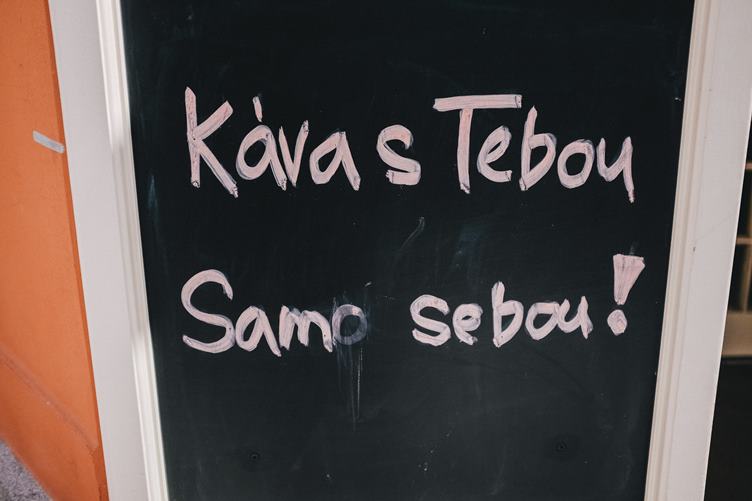 Káva s Tebou
Samo sebou!